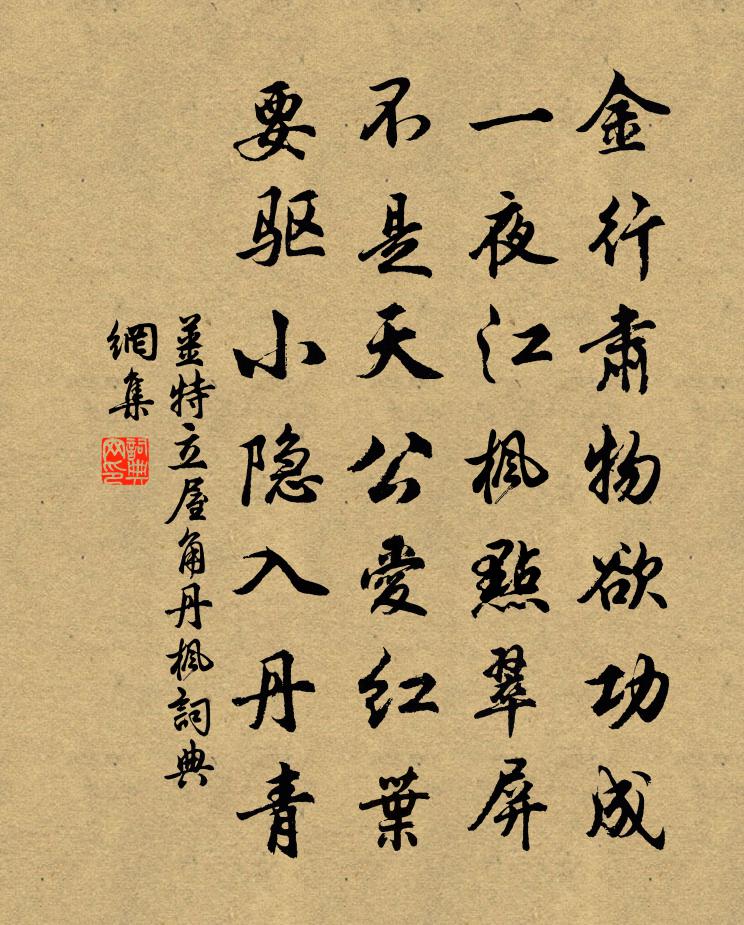 金行肅物欲功成
一夜江楓點翠屏
不是天公愛红葉
要驱小隐入丹青
姜特立屋角丹楓詞典
網集
詞典
网印